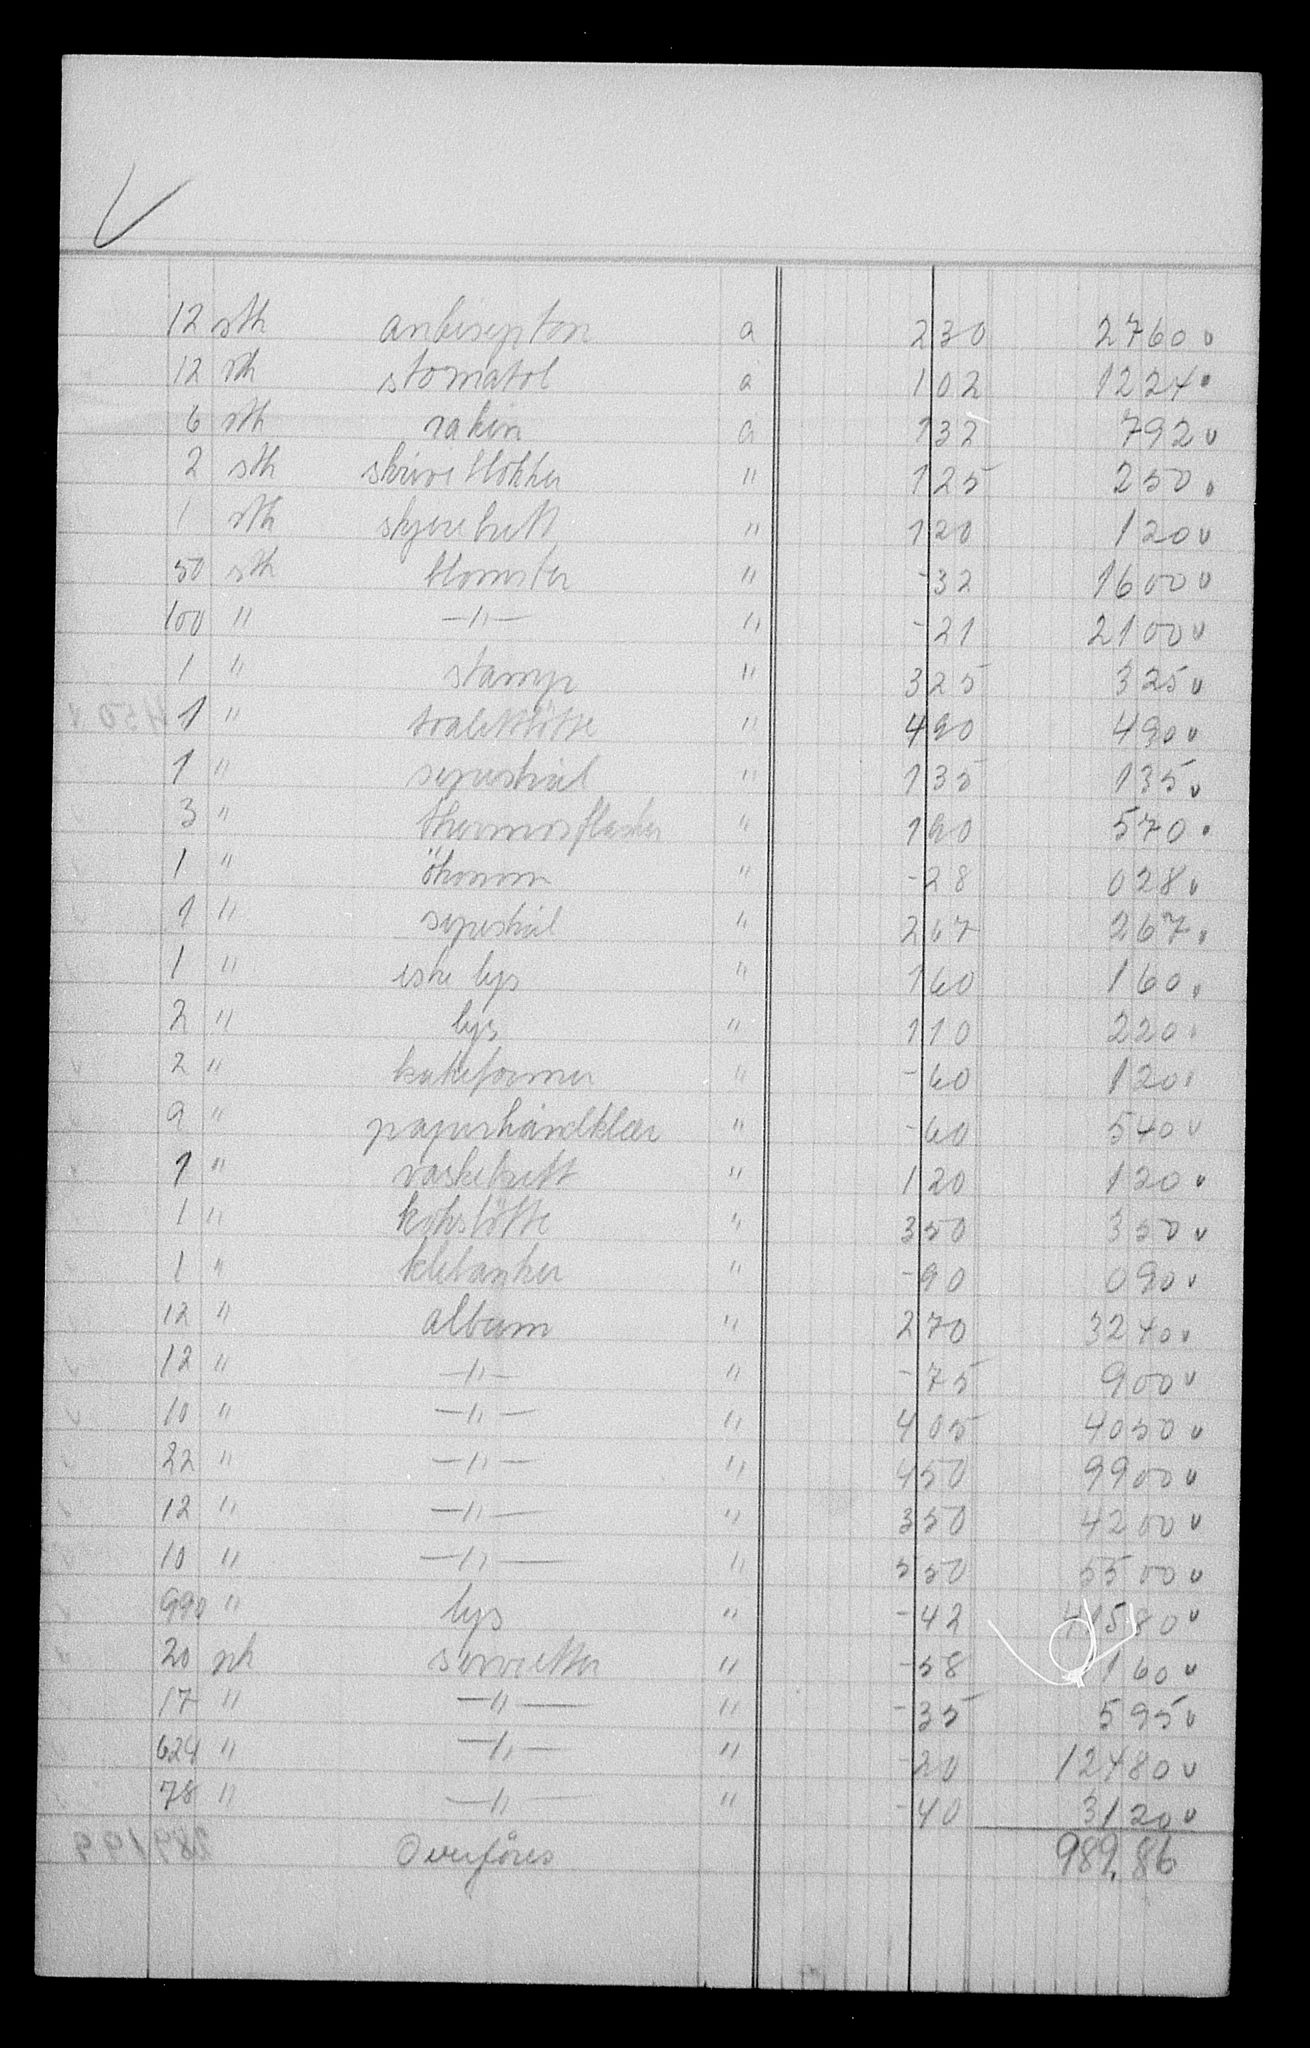 12 stk antisepton a 230 2760
12 stk stomatol a 102 1224
6 stk rakin a 132 792
2 stk skriveblokker " 125 250
1 stk skjerebrett " 120 120
50 stk blomster " -32 1600
100 " —"— " -21 2100
1 " stamp " 325 325
1 " " 490 490
1 " " 135 135
3 " thermosflasker " 190 570
1 " " -28 028
1 " " 267 267
1 " eske lys " 160 160
2 " lys " 110 220
2 " kakeformer " -60 120
9 " papirhåndklær " -60 540
1 " vaskebrett " 120 120
1 " " 350 350
1 " " -90 090
12 " album " 270 3240
12 " —"— " -75 900
10 " —"— " 405 4050
22 " —"— " 450 9900
12 " —"— " 350 4200
10 " —"— " 550 5500
990 " lys " -42 41580
20 servietter " -58 1160
17 " —"— " -35 595
624 " —"— " -20 12480
78 " —"— " -40 3120
Overføres 989.86